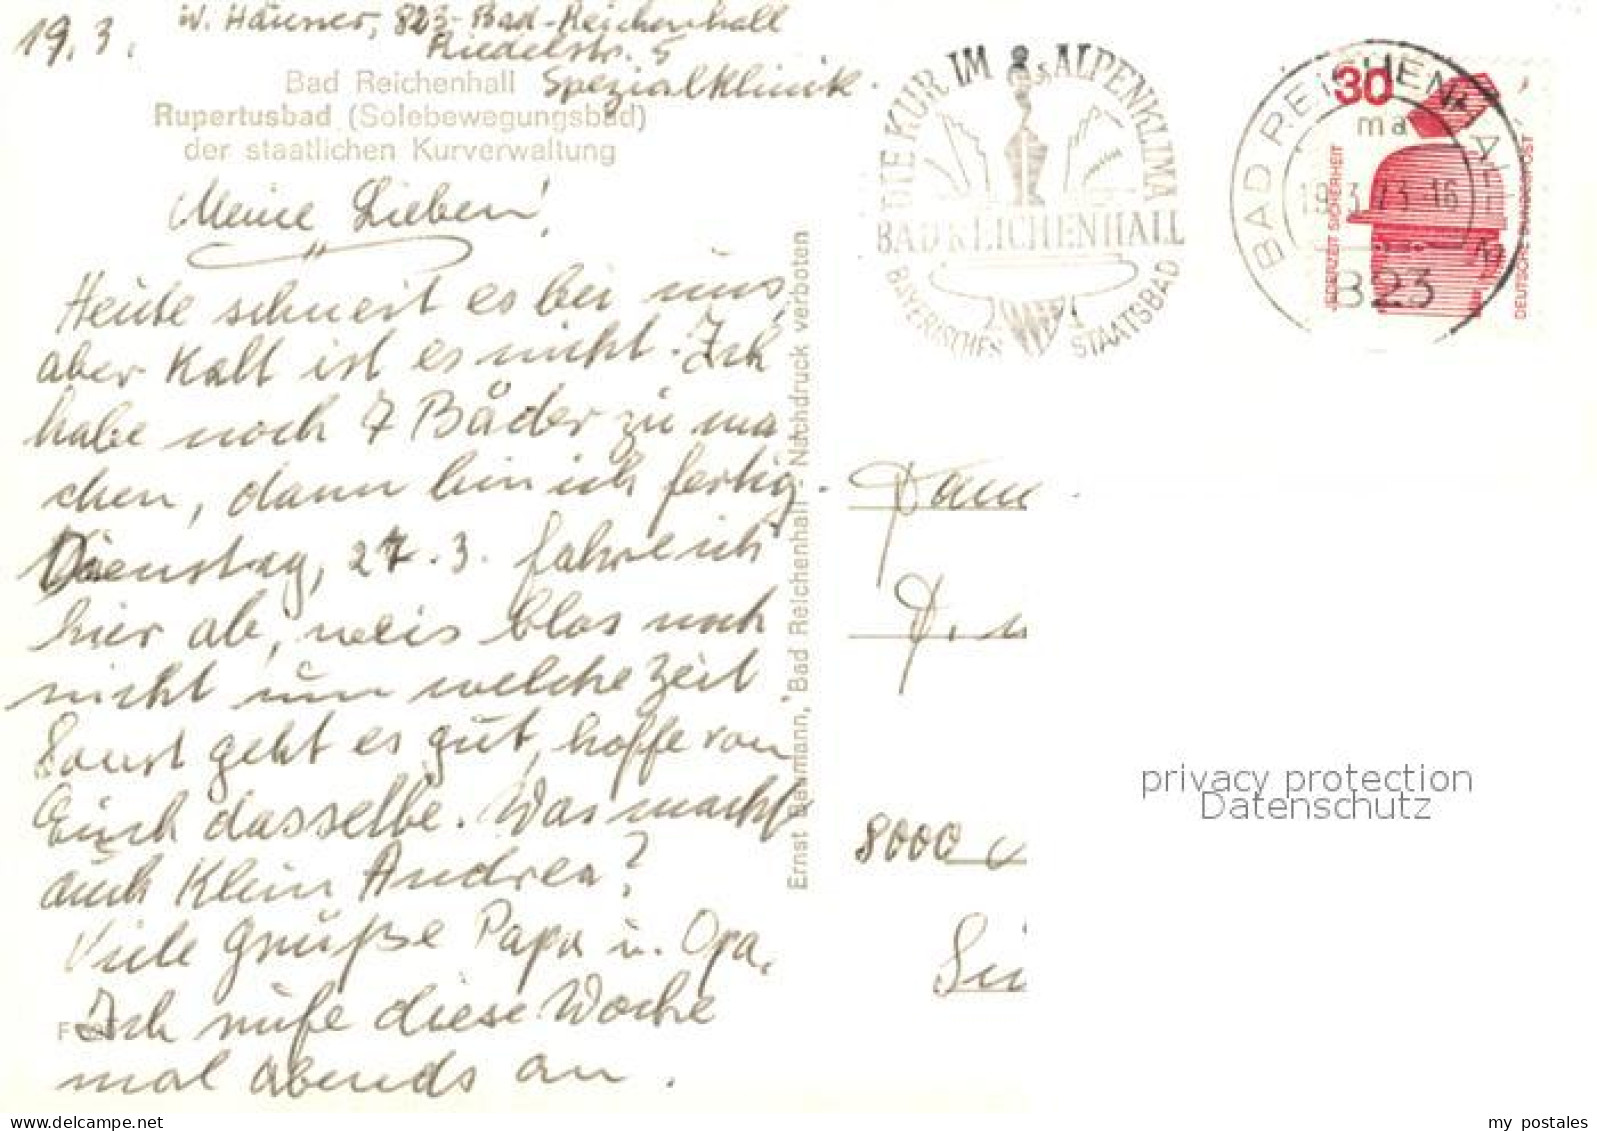 19.3.
W. Häusner, 823-Bad-Reichenhall
Riedelstr. 5
Spezialklinik.
Bad Reichenhall
Rupertusbad (Solebewegungsbad)
der staatlichen Kurverwaltung
Meine Lieben!
Heute schneit es bei uns,
aber kalt ist es nicht. Ich
habe noch 7 Bäder zu ma
chen, dann bin ich fertig.
Dienstag, 27.3. fahre ich
hier ab, weis blos noch
nicht um welche Zeit.
Sonst geht es gut, hoffe von
Euch dasselbe. Was macht
auch Klein Andrea?
Viele Grüße Papa u. Opa.
Ich rufe diese Woche
mal abends an.
Ernst Baumann, Bad Reichenhall - Nachdruck verboten
DIE KUR IM ALPENKLIMA
BAD REICHENHALL
BAYERISCHES STAATSBAD
BAD REICHENHALL
ma
19.3.73-16
823
30
JEDERZEIT SICHERHEIT
DEUTSCHE BUNDESPOST
Fam
8000
privacy protection
Datenschutz
my postales